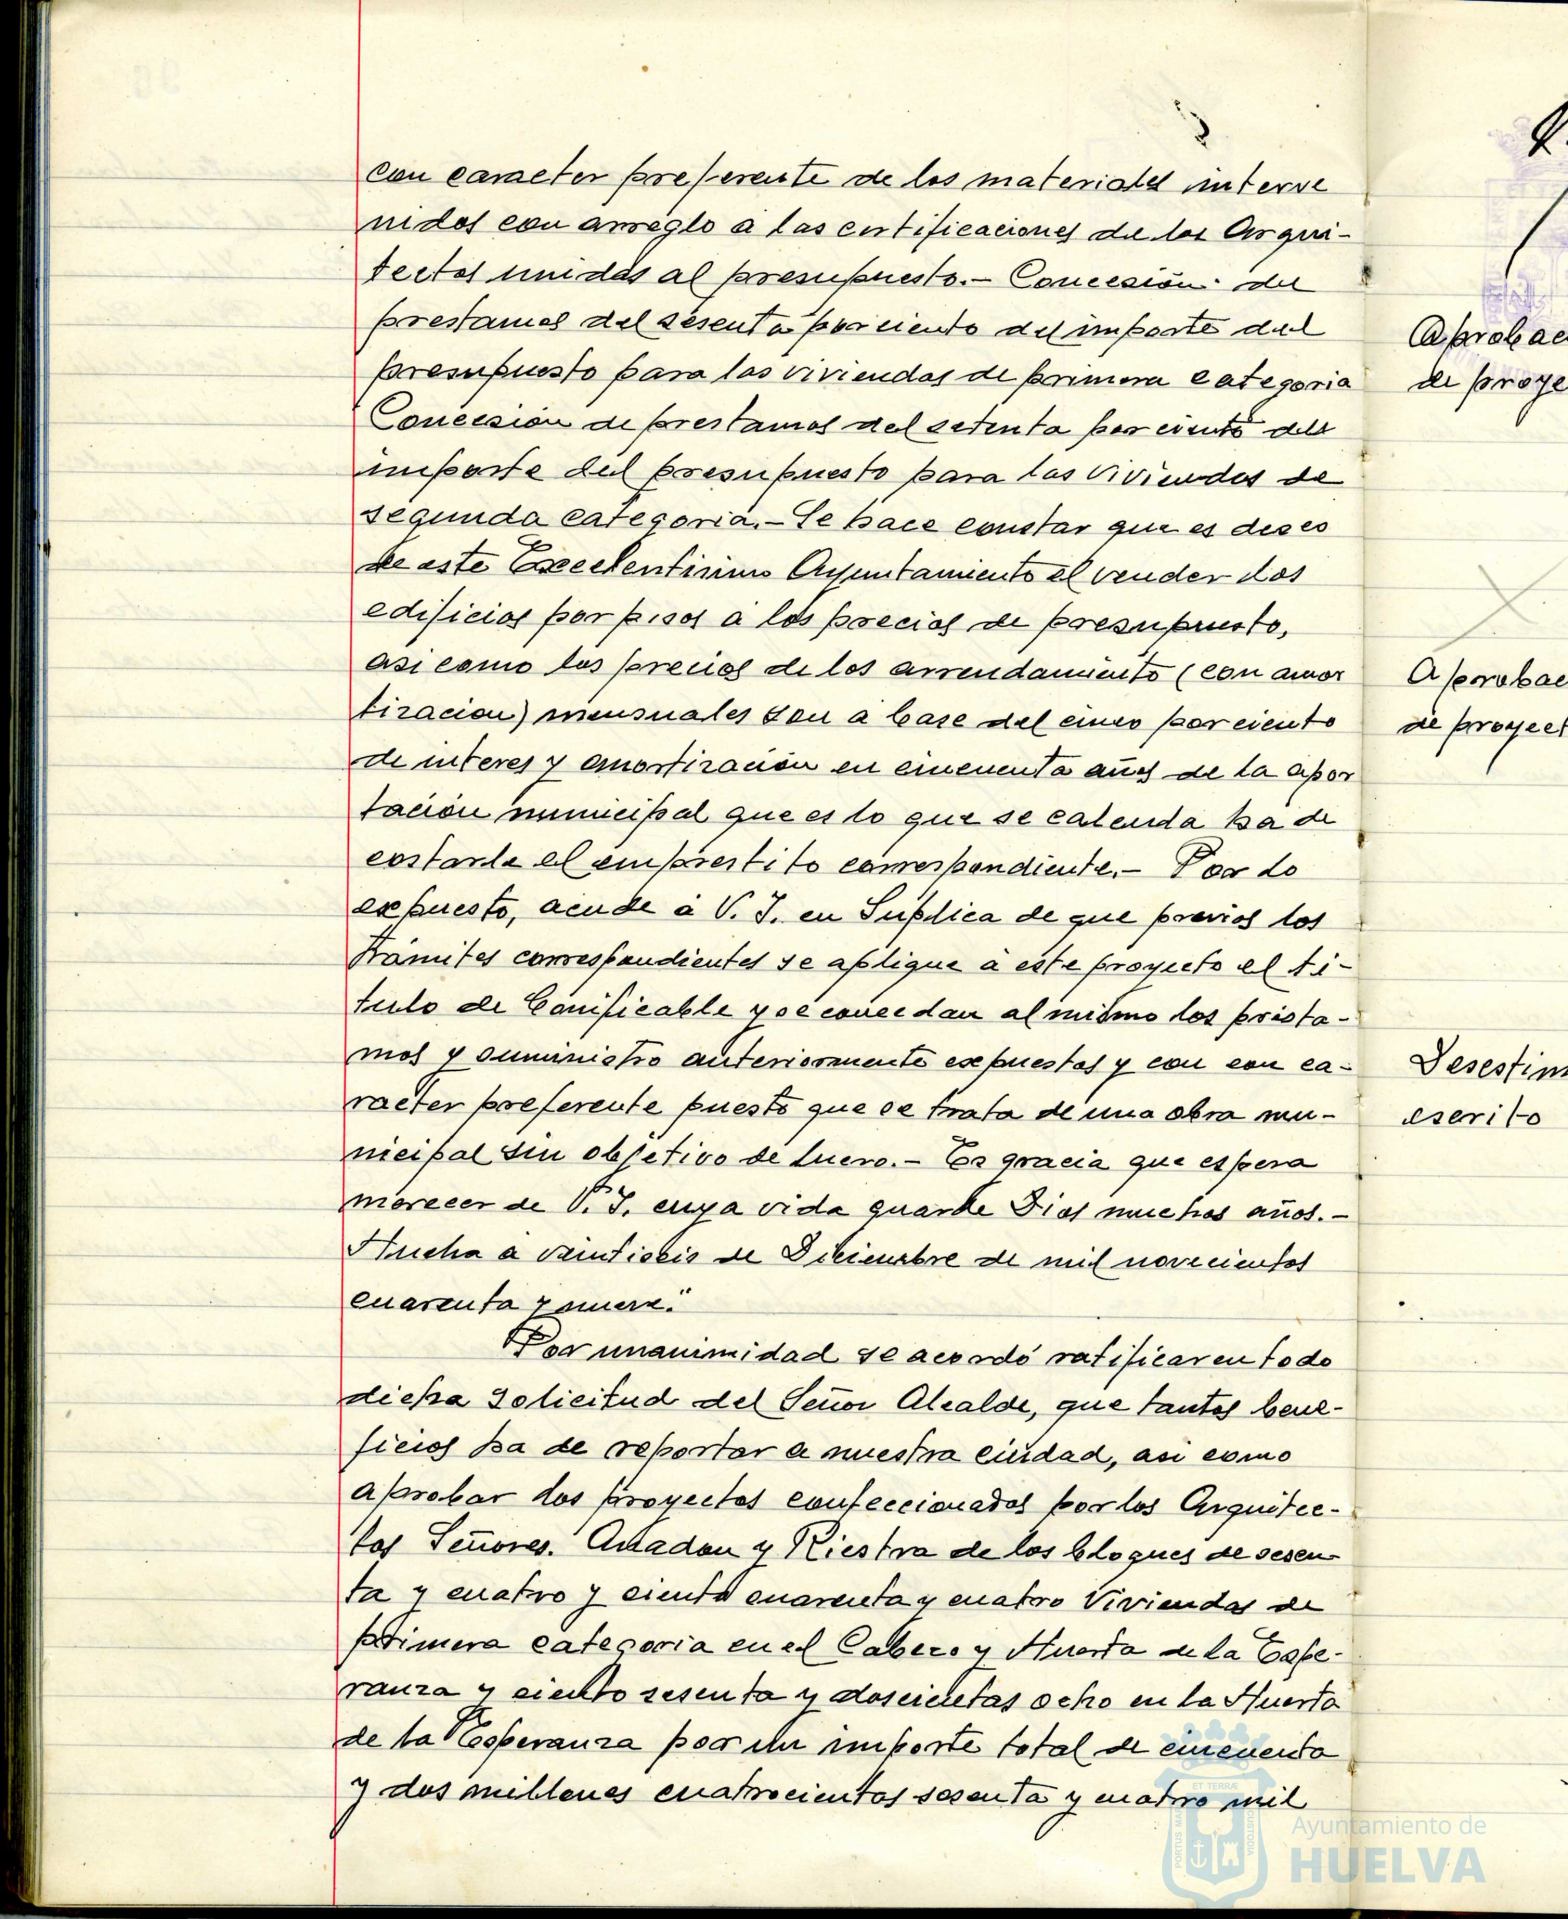 con caracter preferente de los materiales interve
nidos con arreglo a las certificaciones de los Arqui-
tectos unidas al presupuesto.- Concesión de
prestamos del sesenta por ciento del importe del
presupuesto para las viviendas de primera categoria
Concesión de prestamos del setenta por ciento del
importe del presupuesto para las viviendas de
segunda categoria.- Se hace constar que es deseo
de este Excelentisimo Ayuntamiento el vender los
edificios por pisos a los precios de presupuesto,
asi como los precios de los arrendamiento (con amor
tizacion) mensuales son a base del cinco por ciento
de interes y amortizacion en cincuenta años de la apor
tación municipal que es lo que se calcula ha de
costarle el emprestito correspondiente.- Por lo
expuesto, acude a V. I. en Suplica de que previos los
trámites correspondientes se aplique a este proyecto el tí-
tulo de Bonificable y se concedan al mismo los présta-
mos y suministro anteriormente expuestos y con con ca-
racter preferente puesto que se trata de una obra mu-
nicipal sin objetivo de lucro.- Es gracia que espera
merecer de V. I. cuya vida guarde Dios muchos años.-
Huelva a veintiseis de Diciembre de mil novecientos
cuarenta y nueve."
Por unanimidad se acordó ratificar en todo
dicha Solicitud del Señor Alcalde, que tantos bene-
ficios ha de reportar a nuestra ciudad, asi como
aprobar los proyectos confeccionados por los Arquitec-
tos Señores. Anadon y Riestra de los bloques de sesen
ta y cuatro y ciento cuarenta y cuatro Viviendas de
primera categoria en el Cabezo y Huerta de la Espe-
ranza y ciento sesenta y doscientas ocho en la Huerta
de la Esperanza por un importe total de cincuenta
y dos millones cuatrocientos sesenta y cuatro mil
Aprobac
de proye
Aprobac
de proyect
Desestim
escrito
Ayuntamiento de
HUELVA